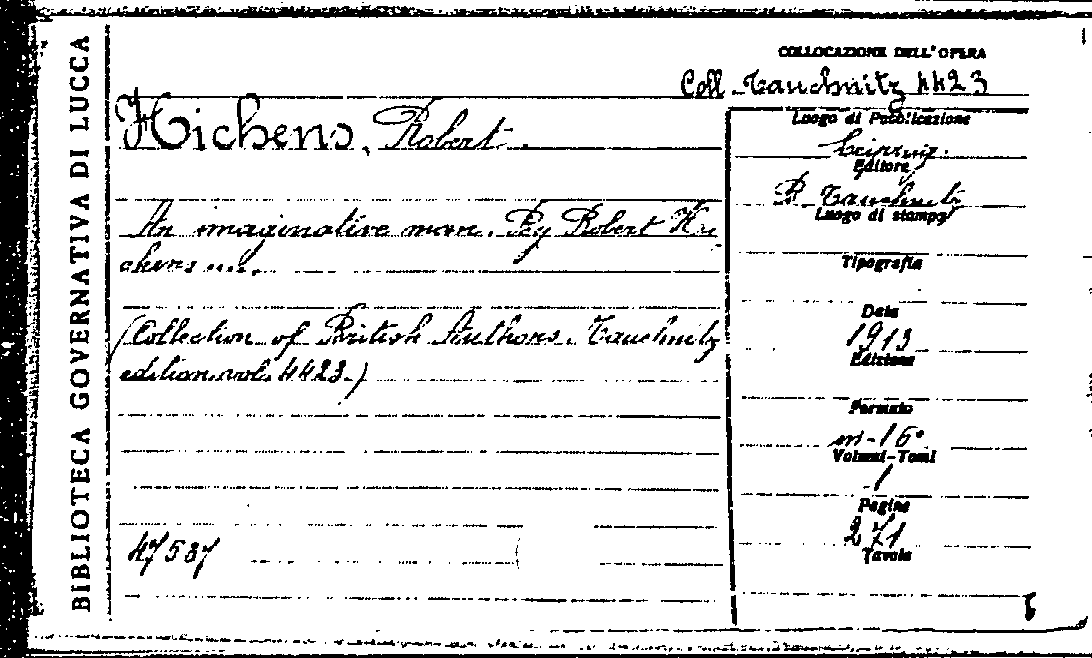 BIBLIOTECA GOVERNATIVA DI LUCCA
COLLOCAZIONE DELL'OPERA
Coll. Tauchnitz 4423
Hichens, Robert.
An imaginative man. By Robert Hi
chens ....
(Collection of British Authors. Tauchnitz
edition. vol. 4423.)
47537
Luogo di Pubblicazione
Leipzig.
Editore
B. Tauchnitz
Luogo di stampa
Tipografia
Data
1913
Edizione
Formato
in-16°
Volumi-Tomi
1
Pagine
271
Tavole